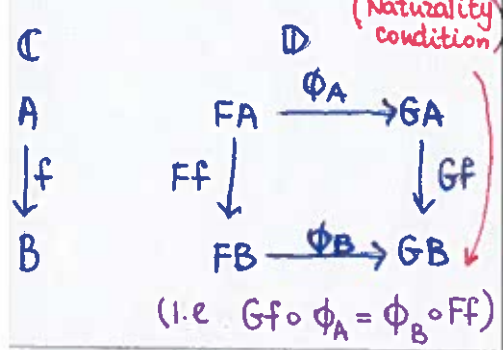 (Naturality
condition)
ℂ 𝔻
A FA ϕA GA
f Ff Gf
B FB ϕB GB
(i.e Gf∘ϕA = ϕB∘Ff)